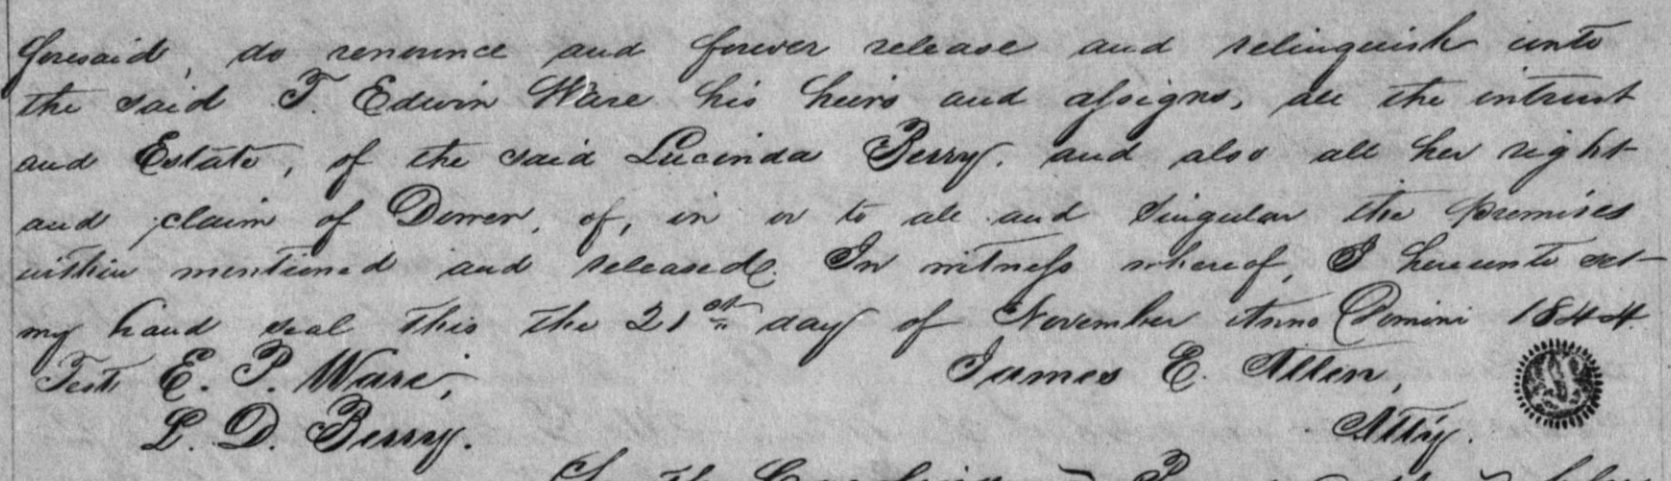 foresaid, do renounce and forever release and relinquish unto
the said T. Edwin Ware his heirs and assigns, all the intrust
and Estate, of the said Lucinda Berry. and also all her right
and claim of Dower, of, in or to all and singular the premises
within mentioned and released. In witness whereof, I hereunto set
my hand seal this the 21st day of November Anno Domini 1844.
Test E. P. Ware, James E. Allen,
L. D. Berry. Atty.
South Carolina